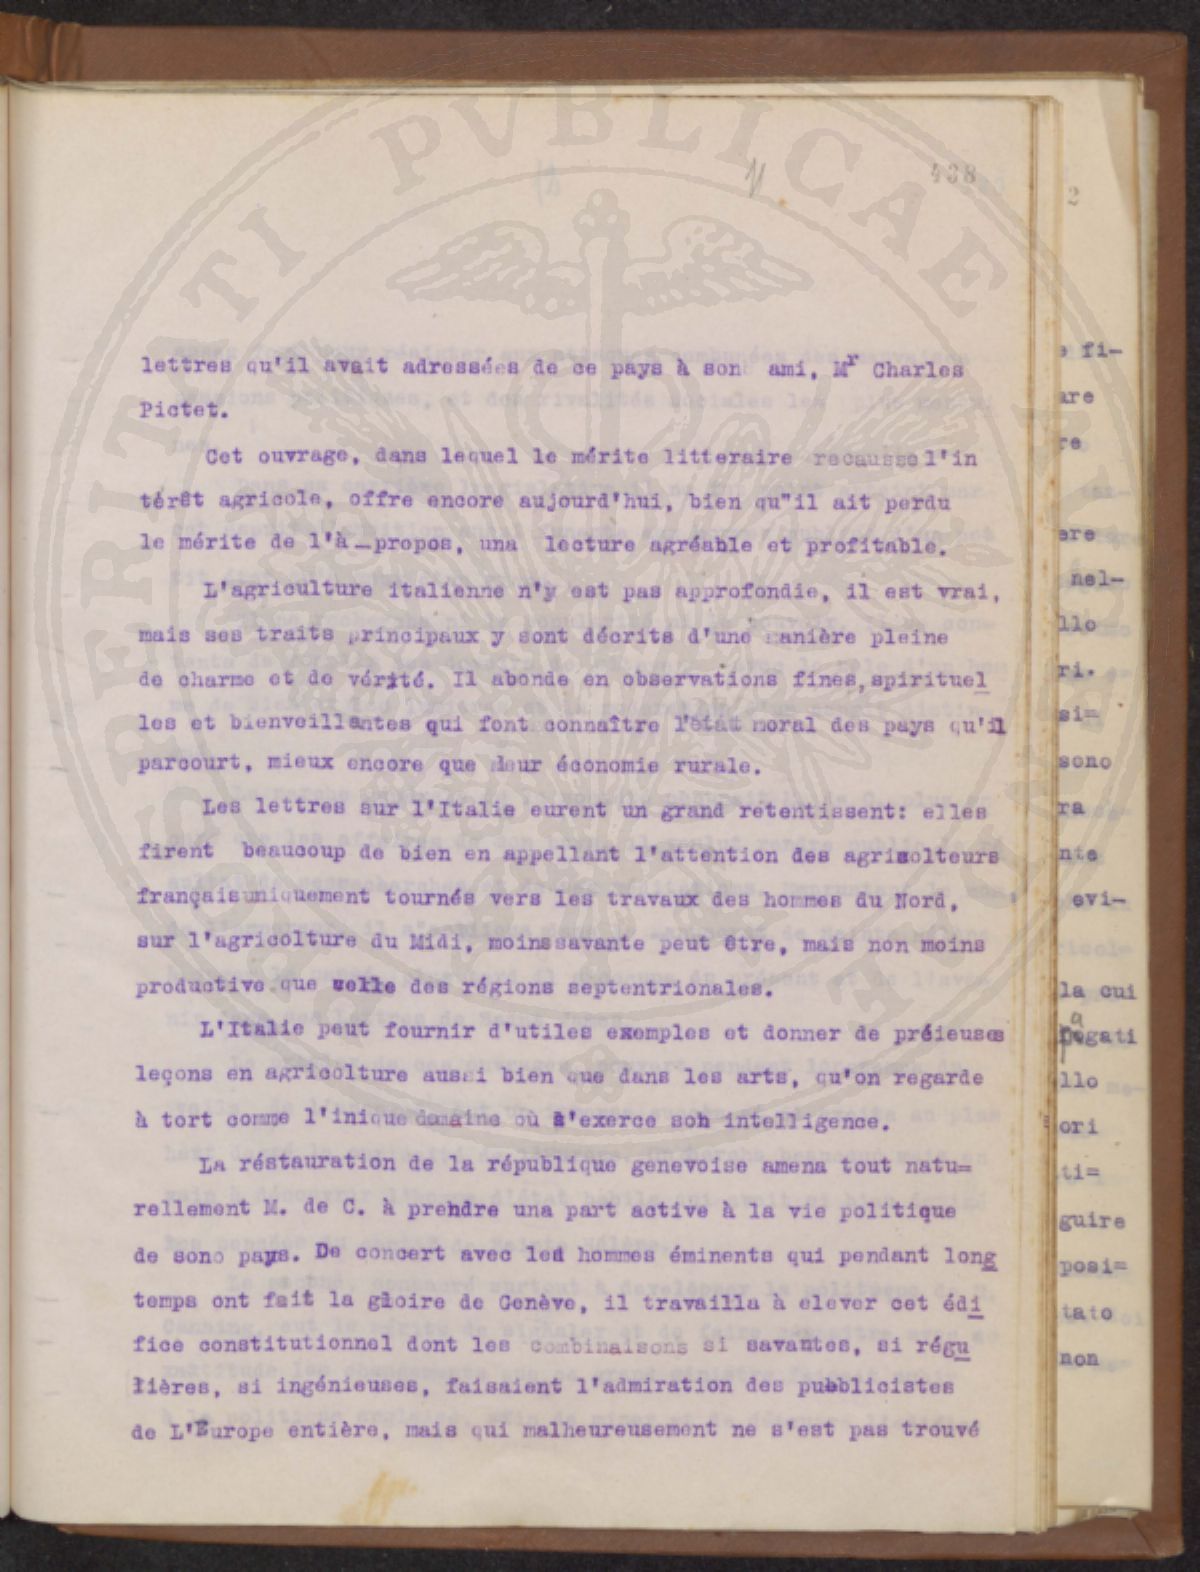 438
lettres qu'il avait adressées de ce pays à son ami, Mr Charles
Pictet.
Cet ouvrage, dans lequel le mérite litteraire recausse l'in
térêt agricole, offre encore aujourd'hui, bien qu"il ait perdu
le mérite de l'à-propos, una lecture agréable et profitable.
L'agriculture italienne n'y est pas approfondie, il est vrai,
mais ses traits principaux y sont décrits d'une manière pleine
de charme et de vérité. Il abonde en observations fines, spirituel
les et bienveillantes qui font connaître l'état moral des pays qu'il
parcourt, mieux encore que leur économie rurale.
Les lettres sur l'Italie eurent un grand retentissent: elles
firent beaucoup de bien en appellant l'attention des agricolteurs
français uniquement tournés vers les travaux des hommes du Nord,
sur l'agricolture du Midi, moins savante peut être, mais non moins
productive que celle des régions septentrionales.
L'Italie peut fournir d'utiles exemples et donner de préieuses
leçons en agricolture aussi bien que dans les arts, qu'on regarde
à tort comme l'inique domaine où s'exerce son intelligence.
La réstauration de la république genevoise amena tout natu=
rellement M. de C. à prendre una part active à la vie politique
de sono pays. De concert avec les hommes éminents qui pendant long
temps ont fait la gloire de Genève, il travailla à elever cet édi
fice constitutionnel dont les combinaisons si savantes, si régu
lières, si ingénieuses, faisaient l'admiration des publicistes
de L'Europe entière, mais qui malheureusement ne s'est pas trouvé
2
fi-
are
re
ere
nel-
llo
ri.
si=
sono
ra
nte
evi-
la cui
pagati
llo
ori
ti=
guire
posi=
tato
non
PROSPERITATI PVBLICAE AVGENDAE